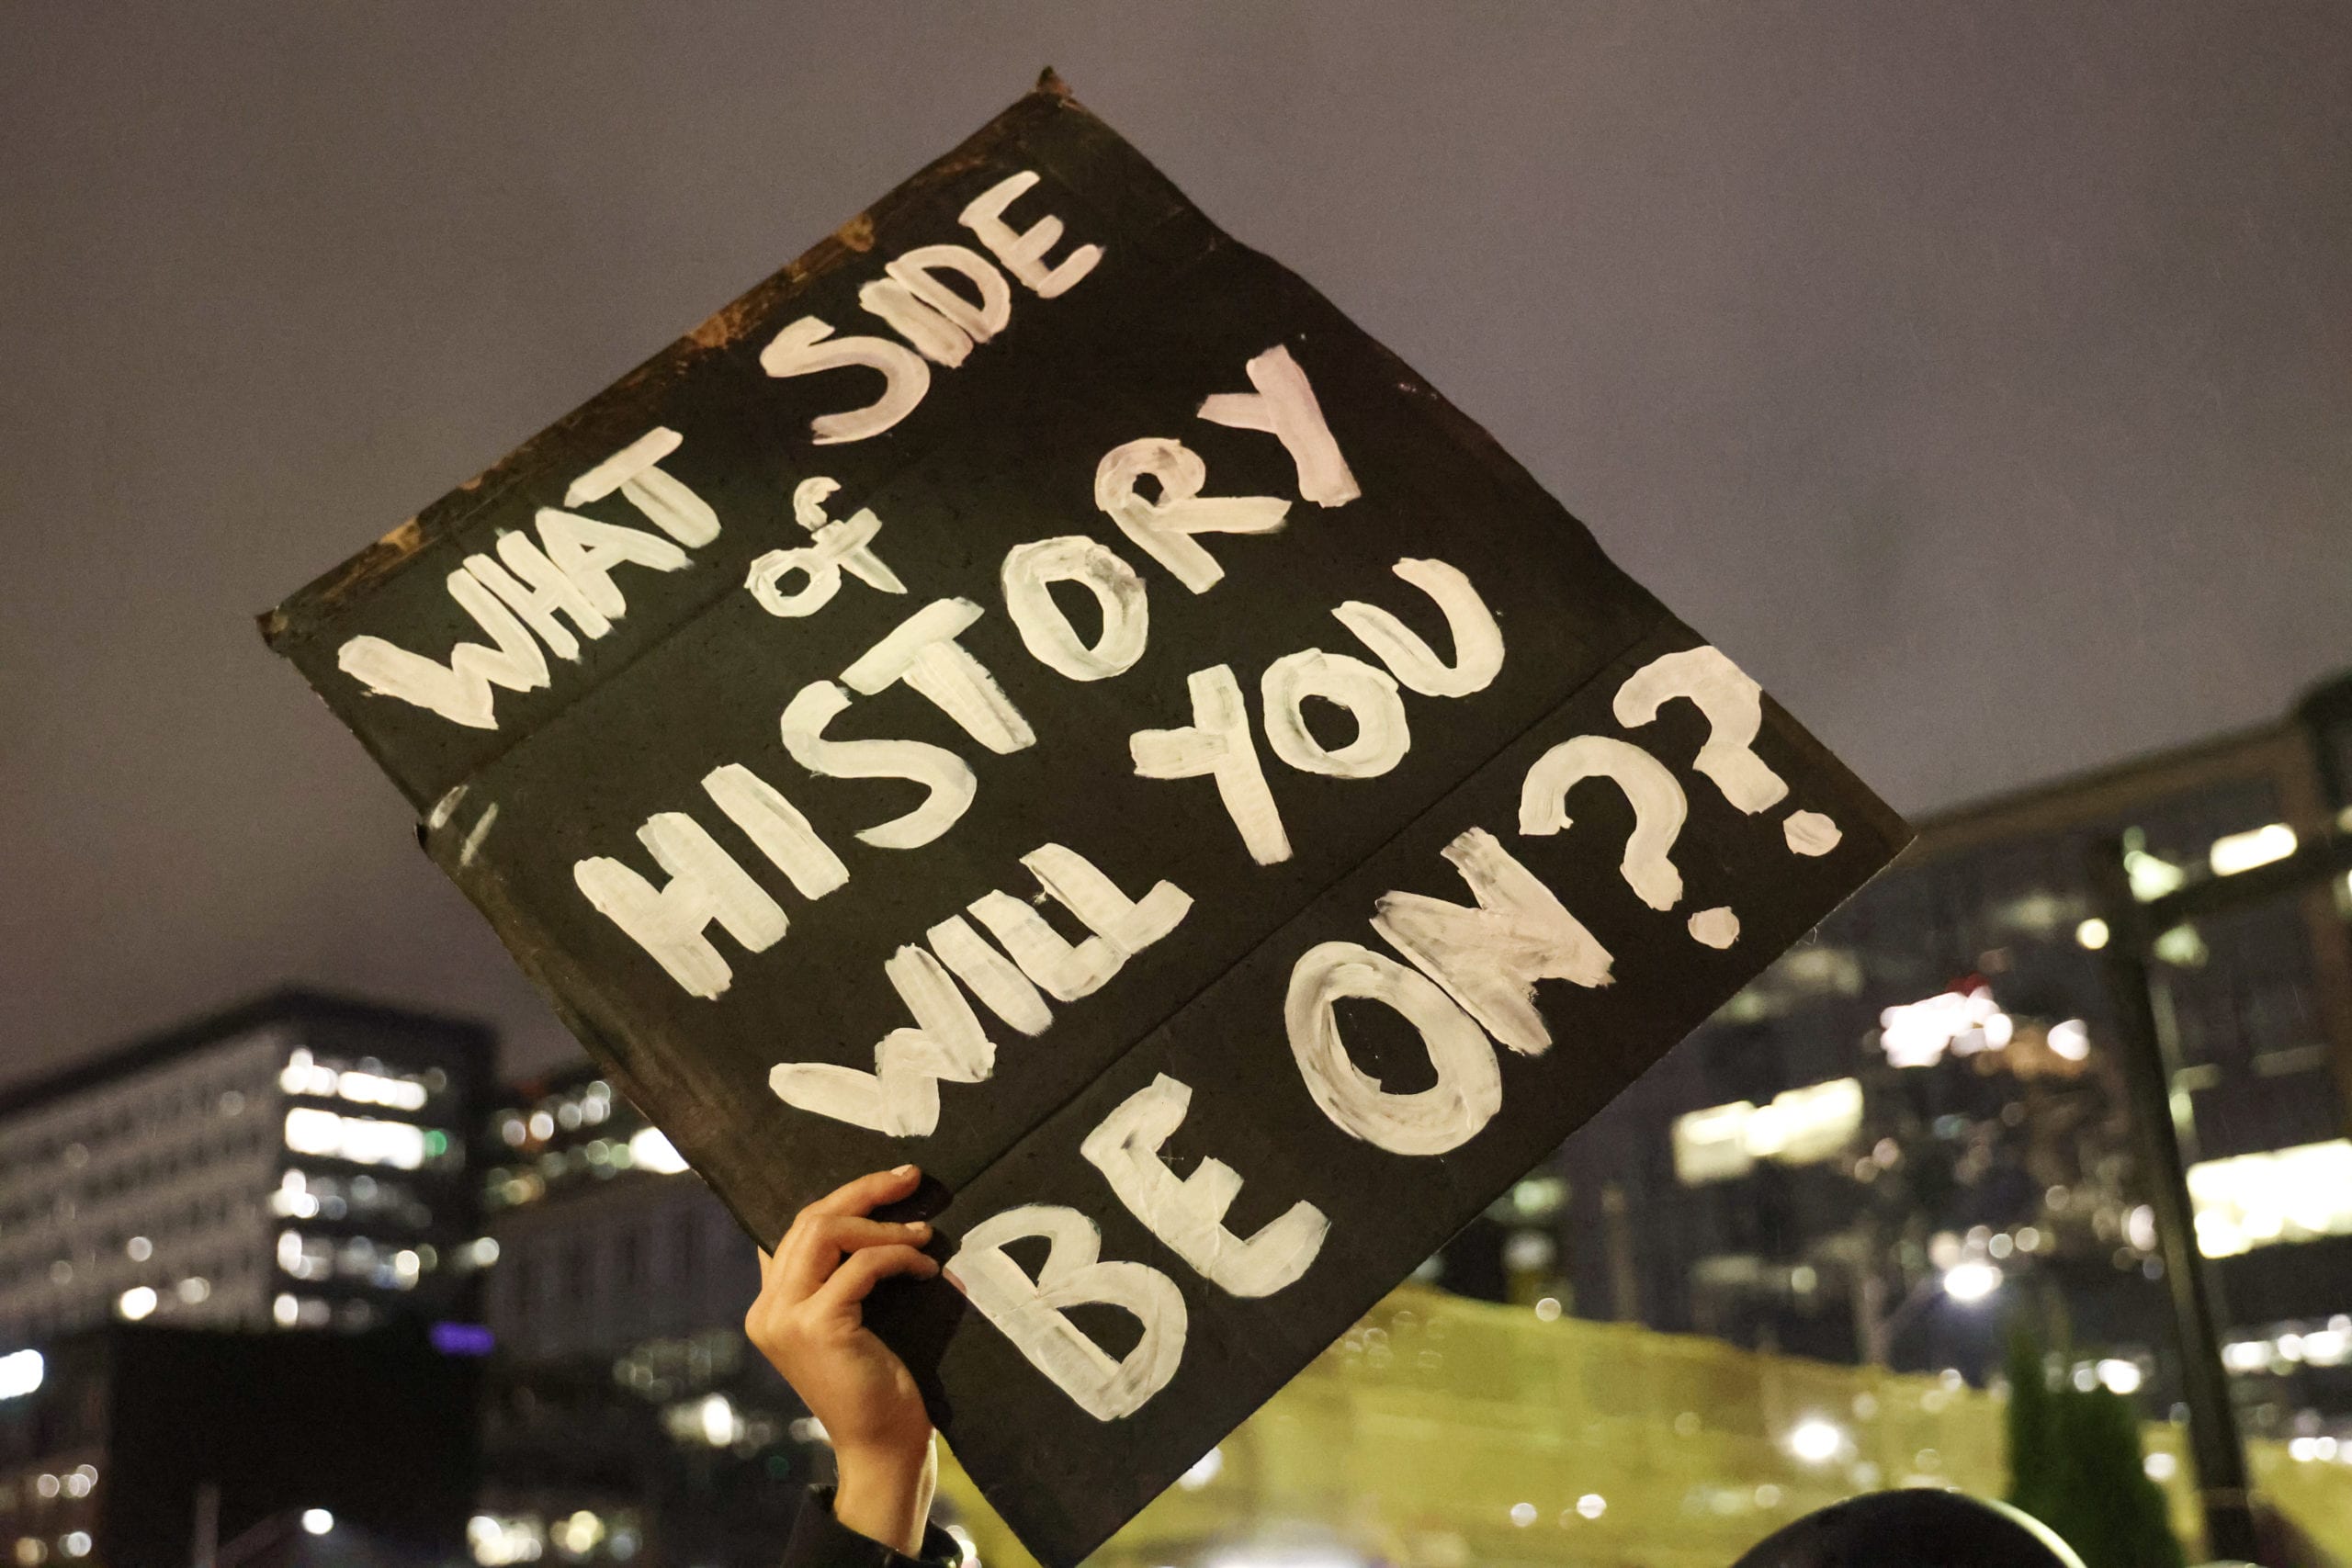 WHAT SIDE
of
HISTORY
WILL YOU
BE ON??